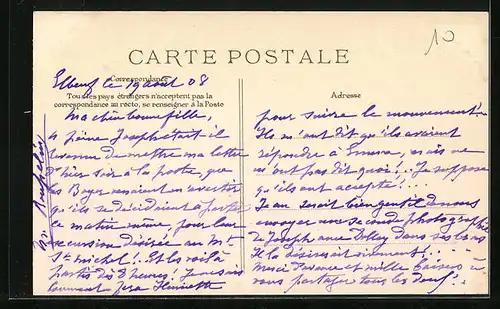 10
CARTE POSTALE
Correspondance
Elbeuf le 19 août 08
Tous les pays étrangers n'acceptent pas la
correspondance au recto, se renseigner à la Poste
Adresse
Ma chère bonne fille,
à peine Joseph était-il
revenu de mettre ma lettre
d'hier soir à la poste, que
les Boyer venaient m'avertir
qu'ils se décidaient à partir
ce matin même, pour leur
excursion désirée au Mt
St Michel! Et les voilà
partis dès 8 heures! Je ne sais
comment fera Henriette
pour suivre le mouvement!
Ils m'ont dit qu'ils avaient
répondre à mais ne
m'ont pas dit quoi!.. Je suppose
qu'ils ont accepté!...
Tu serait bien gentil de nous
envoyer une seconde photographie
de Joseph avec dans ses bras
Il la désirerait vivement!
Merci d'avance et mille baisers à
vous partager tous les deux!